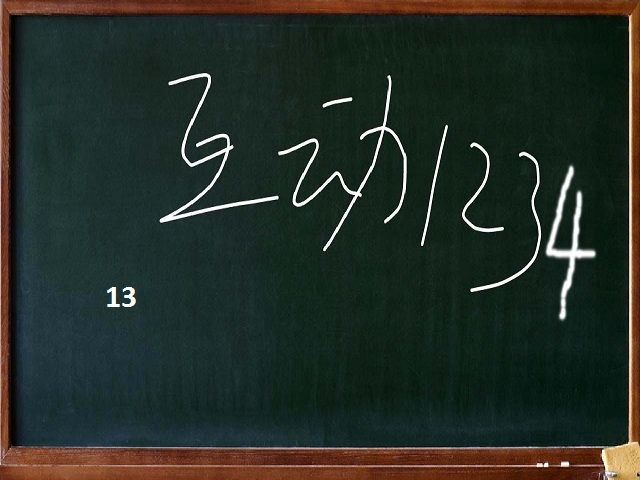 互动1234
13